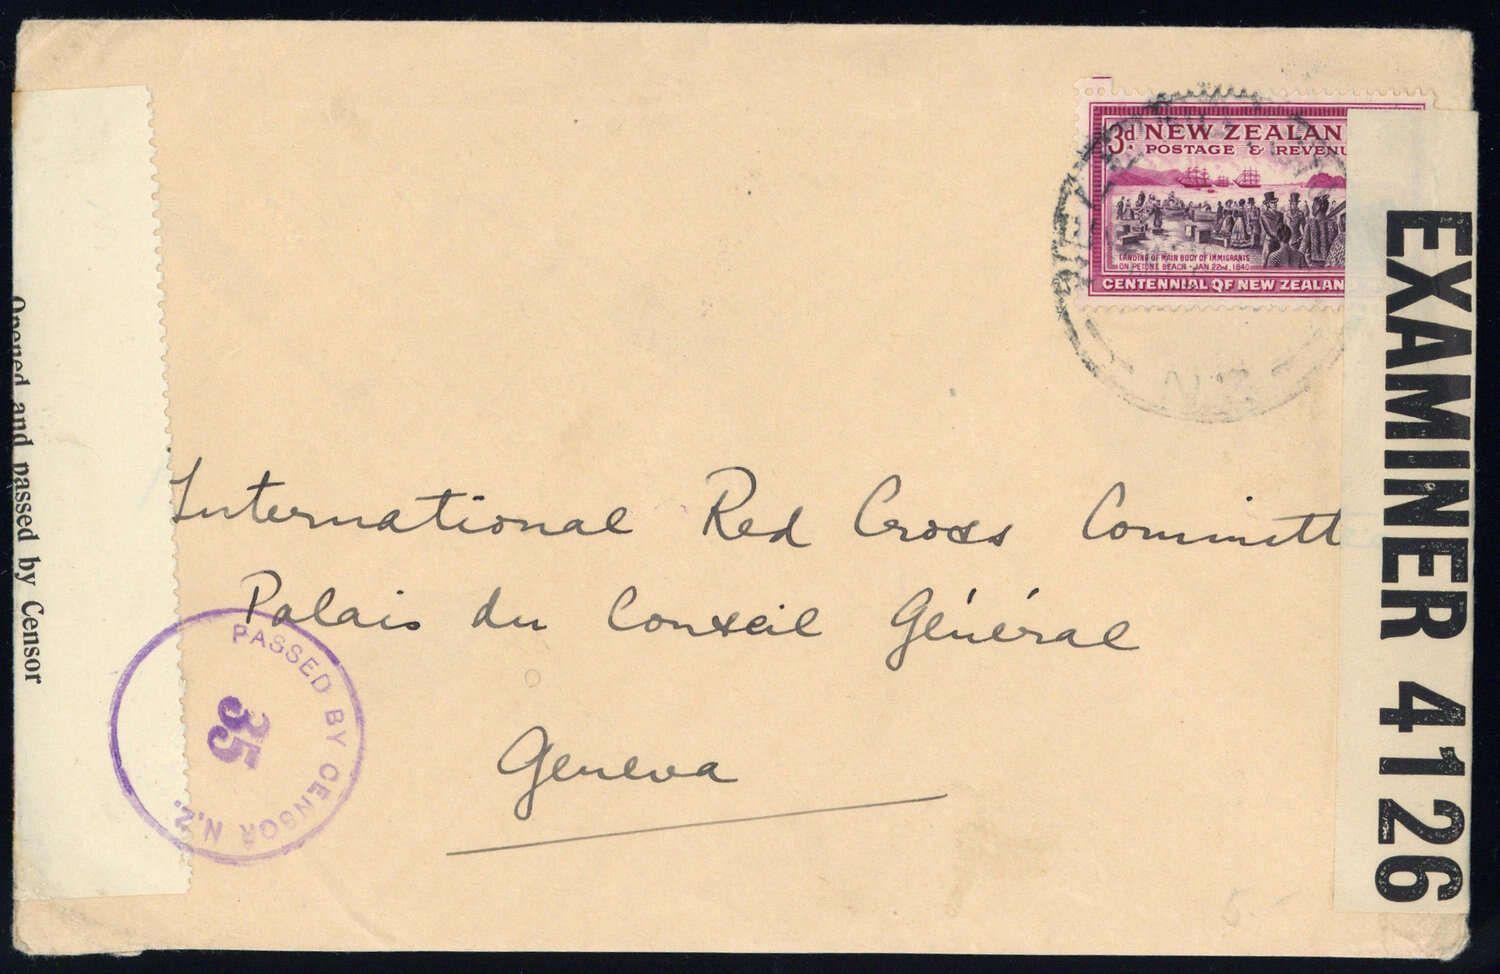 3d NEW ZEALAN
POSTAGE & REVENU
LANDING OF MAIN BODY OF IMMIGRANTS
ON PETONE BEACH - JAN 22nd, 1840
CENTENNIAL OF NEW ZEALAN
EXAMINER 4126
Opened and passed by Censor
International Red Cross Committ
Palais du Conseil Général
Geneva
PASSED BY CENSOR N.Z.
35
5.-